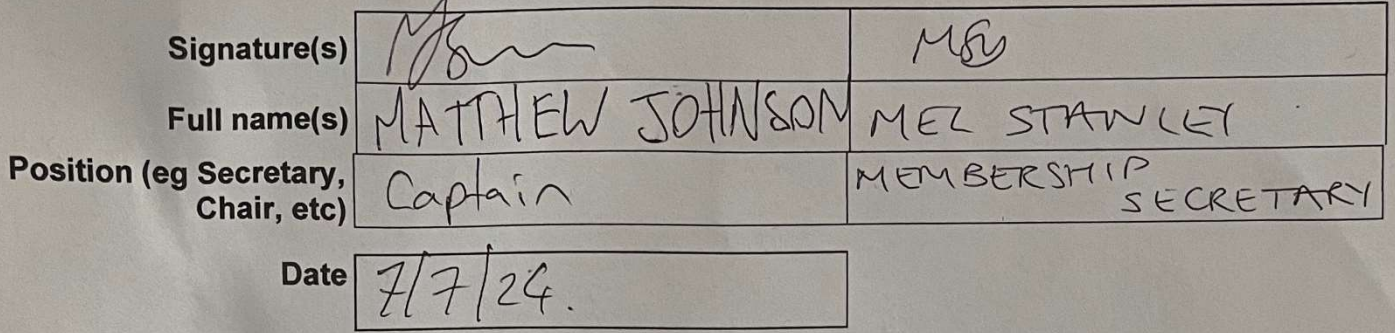 Signature(s)
Full name(s) MATTHEW JOHNSON MEL STANLEY
Position (eg Secretary, Chair, etc) Captain MEMBERSHIP SECRETARY
Date 7/7/24.